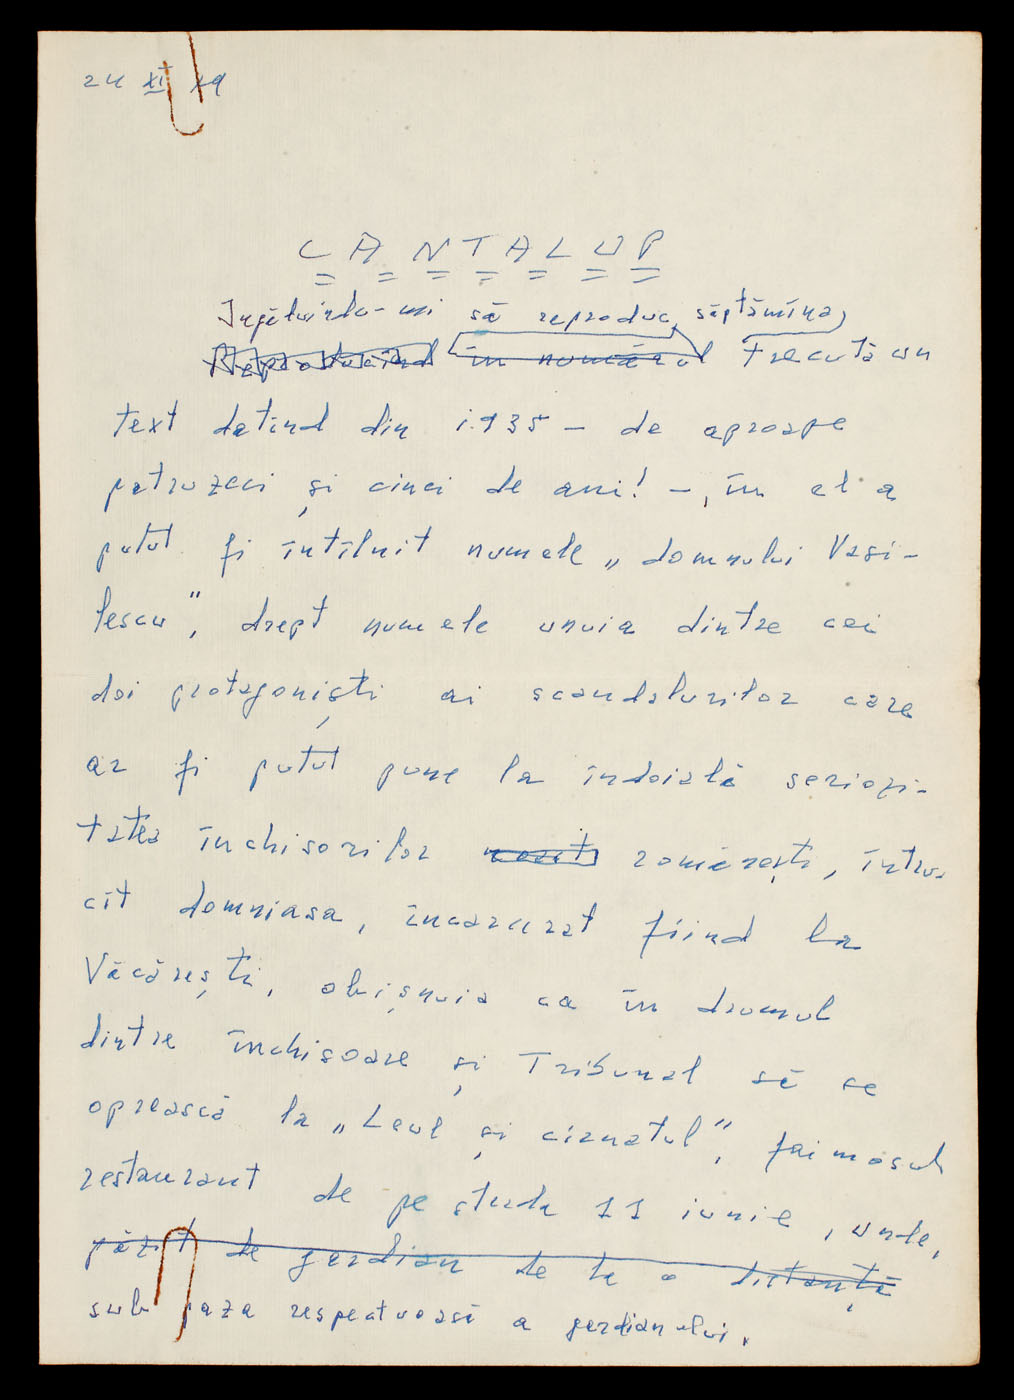 24 XI 79
CANTALUP
Îngăduindu-mi să reproduc, săptămîna
Reproducînd în numărul trecută un
text datînd din 1935 – de aproape
patruzeci și cinci de ani! –, în el a
putut fi întîlnit numele „domnului Vasi-
lescu", drept numele unuia dintre cei
doi protagoniști ai scandalurilor care
ar fi putut pune la îndoială seriozi-
tatea închisorilor romănești, întru-
cît domniasa, încarcerat fiind la
Văcărești, obișnuia ca în drumul
dintre închisoare și Tribunal să se
oprească la „Leul și cîrnatul", faimosul
restaurant de pe strada 11 iunie, unde,
păzit de gardian de la o distanță
sub paza respectuoasă a gardianului,